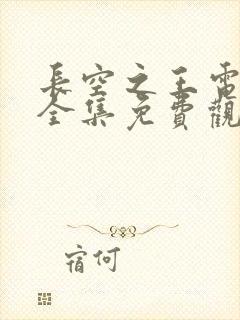 長空之王電
全集免費觀
宿何